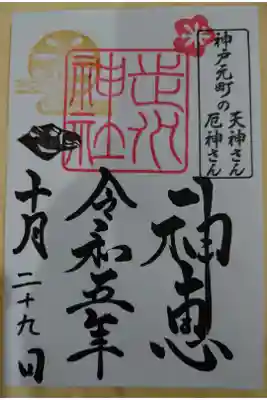 神戸元町の
天神さん
厄神さん
走水
神社
神恵
令和五年
十月二十九日